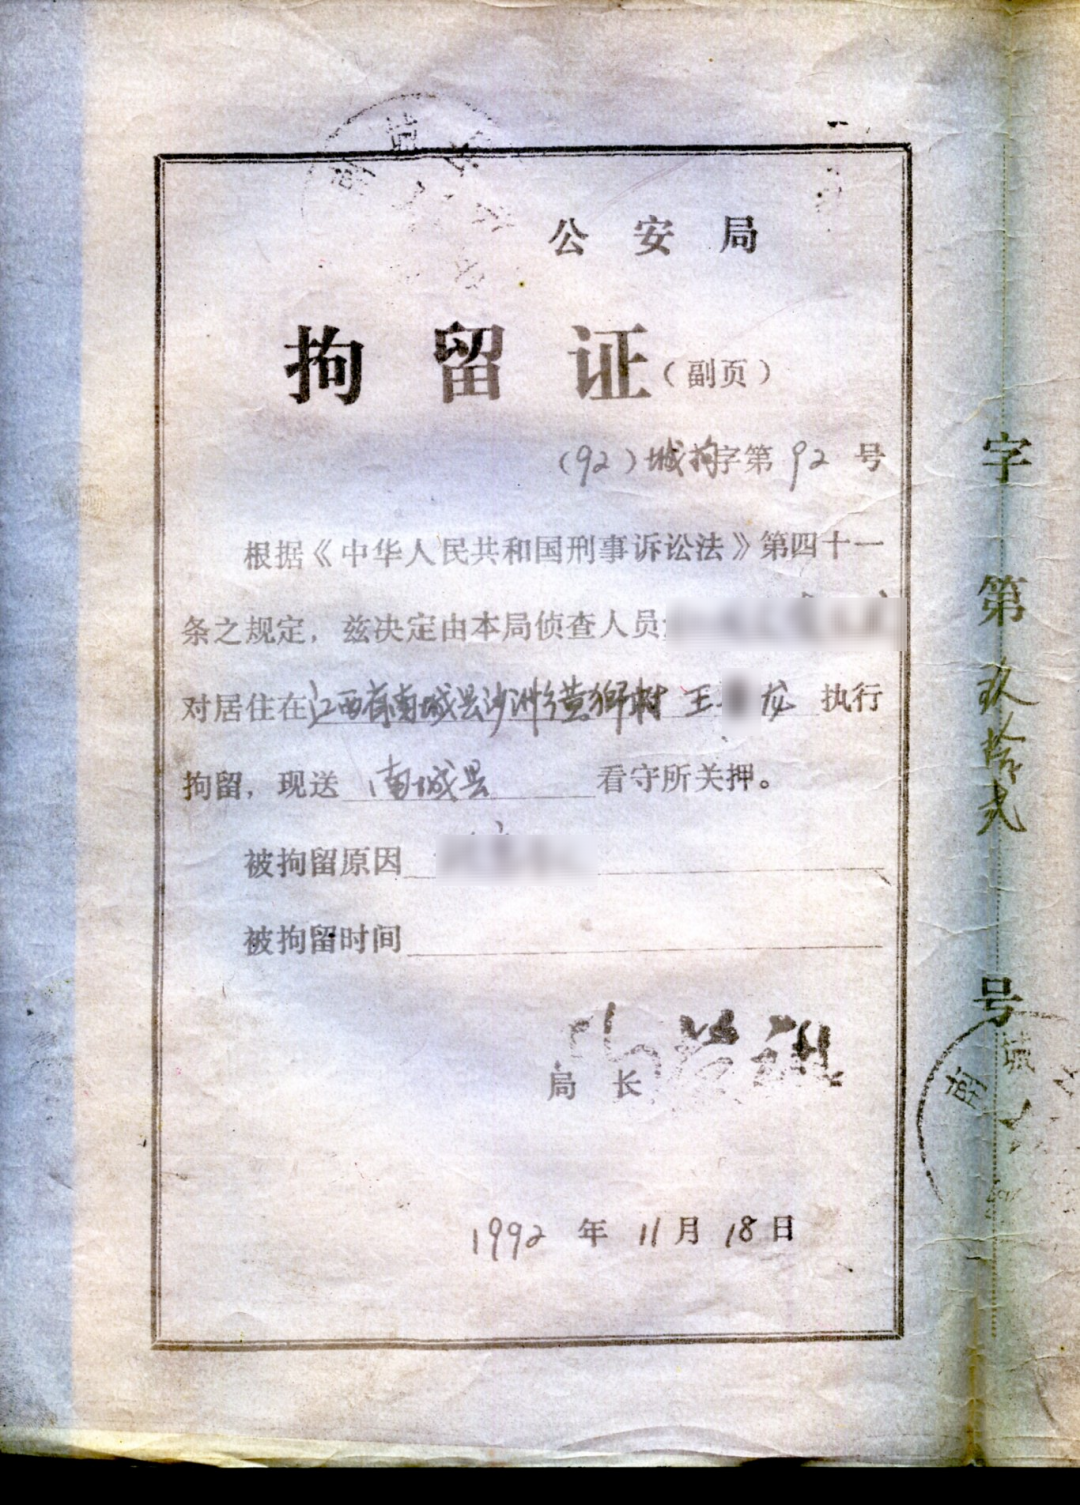 公安局
拘留证（副页）
（92）城拘字第92号
根据《中华人民共和国刑事诉讼法》第四十一
条之规定，兹决定由本局侦查人员
对居住在江西省南城县沙洲 黄狮村 王 龙 执行
拘留，现送 南城县 看守所关押。
被拘留原因
被拘留时间
局长
1992年11月18日
字第玖拾贰号
南城